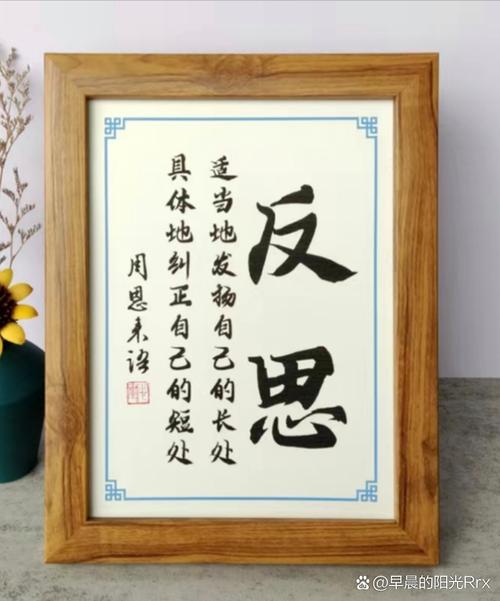 反思
适当地发扬自己的长处
具体地纠正自己的短处
周恩来语
@早晨的阳光Rrx